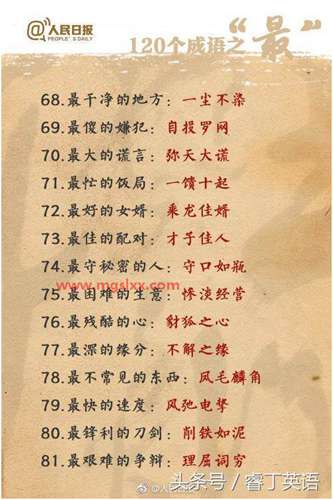 @人民日报
PEOPLE'S DAILY
120个成语之“最”
68.最干净的地方：一尘不染
69.最傻的嫌犯：自投罗网
70.最大的谎言：弥天大谎
71.最忙的饭局：一馈十起
72.最好的女婿：乘龙佳婿
73.最佳的配对：才子佳人
74.最守秘密的人：守口如瓶
www.mgslxx.com
75.最困难的生意：惨淡经营
76.最残酷的心：豺狐之心
77.最深的缘分：不解之缘
78.最不常见的东西：凤毛麟角
79.最快的速度：风驰电掣
80.最锋利的刀剑：削铁如泥
81.最艰难的争辩：理屈词穷
@人民日报
头条号 / 睿丁英语